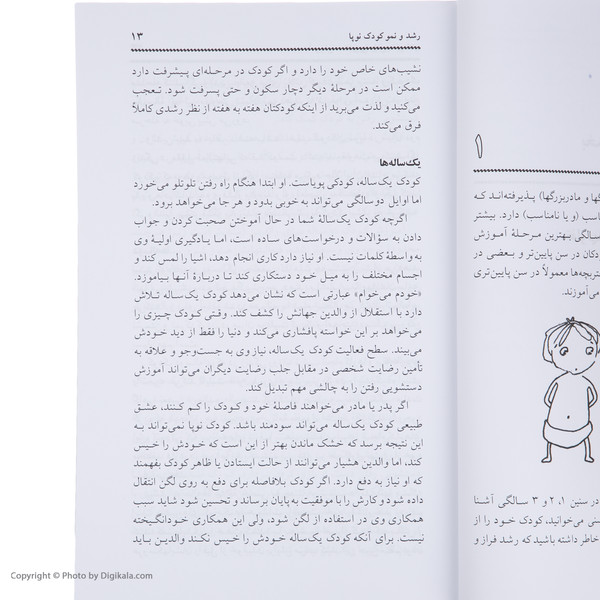 رشد و نمو کودک نوپا
۱۳
نشیب‌های خاص خود را دارد و اگر کودک در مرحله‌ای پیشرفت دارد
ممکن است در مرحلهٔ دیگر دچار سکون و حتی پسرفت شود. تعجب
می‌کنید و لذت می‌برید از اینکه کودکتان هفته به هفته از نظر رشدی کاملاً
فرق می‌کند.
یک‌ساله‌ها
کودک یک‌ساله، کودکی پویاست. او ابتدا هنگام راه رفتن تلوتلو می‌خورد
اما اوایل دوسالگی می‌تواند به خوبی بدود و هر جا می‌خواهد برود.
اگرچه کودک یک‌سالهٔ شما در حال آموختن صحبت کردن و جواب
دادن به سؤالات و درخواست‌های ساده است، اما یادگیری اولیهٔ وی
به واسطهٔ کلمات نیست. او نیاز دارد کاری انجام دهد، اشیا را لمس کند و
اجسام مختلف را به میل خود دستکاری کند تا دربارهٔ آنها بیاموزد.
«خودم می‌خوام» عبارتی است که نشان می‌دهد کودک یک‌ساله تلاش
دارد با استقلال از والدین جهانش را کشف کند. وقتی کودک چیزی را
می‌خواهد بر این خواسته پافشاری می‌کند و دنیا را فقط از دید خودش
می‌بیند. سطح فعالیت کودک یک‌ساله، نیاز وی به جست‌وجو و علاقه به
تأمین رضایت شخصی در مقابل جلب رضایت دیگران می‌تواند آموزش
دستشویی رفتن را به چالشی مهم تبدیل کند.
اگر پدر یا مادر می‌خواهند فاصلهٔ خود و کودک را کم کنند، عشق
طبیعی کودک یک‌ساله می‌تواند سودمند باشد. کودک نوپا نمی‌تواند به
این نتیجه برسد که خشک ماندن بهتر از این است که خودش را خیس
کند، اما والدین هشیار می‌توانند از حالت ایستادن یا ظاهر کودک بفهمند
که او نیاز به دفع دارد. اگر کودک بلافاصله برای دفع به روی لگن انتقال
داده شود و کارش را با موفقیت به پایان برساند و تحسین شود شاید سبب
همکاری وی در استفاده از لگن شود، ولی این همکاری خودانگیخته
نیست. برای آنکه کودک یک‌ساله خودش را خیس نکند والدین باید
۱
گها و مادربزرگها) پذیرفته‌اند که
اسب (و یا نامناسب) دارد. بیشتر
سالگی بهترین مرحلهٔ آموزش
دکان در سن پایین‌تر و بعضی در
تربچه‌ها معمولاً در سن پایین‌تری
می‌آموزند.
در سنین ۱، ۲ و ۳ سالگی آشنا
سنی می‌توانید، کودک خود را از
خاطر داشته باشید که رشد فراز و
Copyright © Photo by Digikala.com